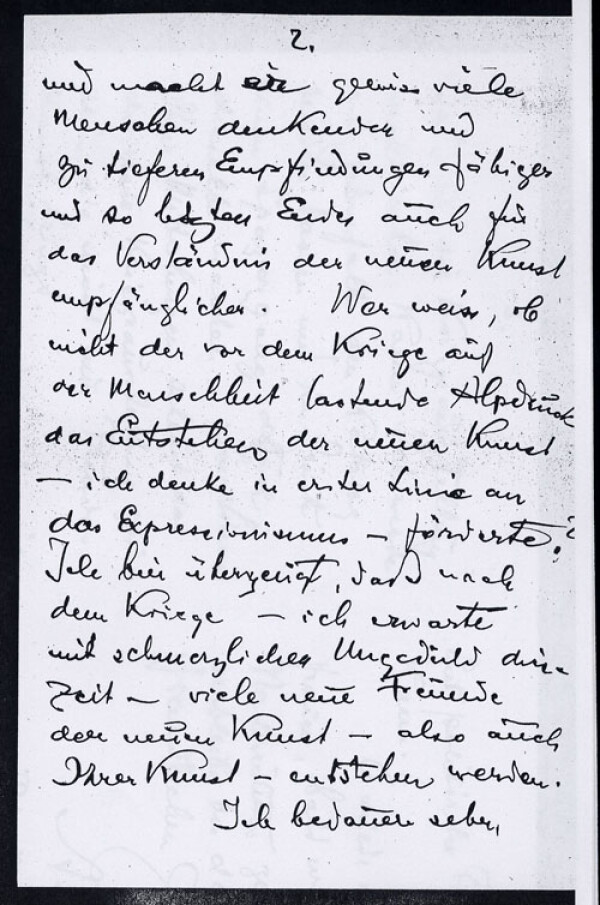 2.
und macht sie gewiss viele
Menschen denkender und
zu tieferen Empfindungen fähiger
und so letzten Endes auch für
das Verständnis der neuen Kunst
empfänglicher. Wer weiss, ob
nicht der vor dem Kriege auf
der Menschheit lastende Alpdruck
das Entstehen der neuen Kunst
– ich denke in erster Linie an
das Expressionismus – förderte?
Ich bin überzeugt, dass nach
dem Kriege – ich erwarte
mit schmerzlicher Ungeduld die
Zeit – viele neue Freunde
der neuen Kunst – also auch
Ihrer Kunst – entstehen werden.
Ich bedauere sehr,